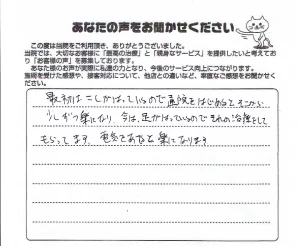 あなたの声をお聞かせください
この度は当院をご利用頂き、ありがとうございました。
当院では、大切なお客様に「最高の治療」と「親身なサービス」を提供したいと考えており「お客様の声」を募集しております。
あなた様のお声が実際に私達の力となり、今後のサービス向上につながります。
施術を受けた感想や、接客対応について、他店との違いなど、率直なご感想をお聞かせください。
最初はこしがはっているので通院をはじめるとそこから
少しずつ楽になり、今は、足がはっているのでそれの治療をして
もらってます。電気をあてると楽になります